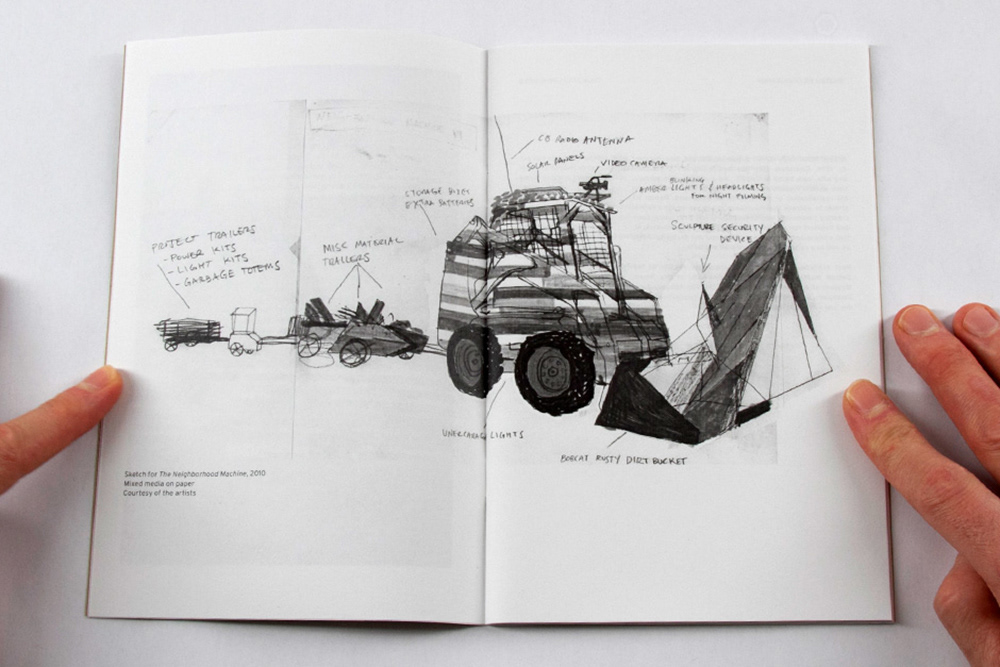 CB RADIO ANTENNA
SOLAR PANELS
VIDEO CAMERA
BLINKING
AMBER LIGHTS / HEADLIGHTS
FOR NIGHT FILMING
STORAGE
EXTRA BATTERIES
SCULPTURE SECURITY
DEVICE
PROJECT TRAILERS
- POWER KITS
- LIGHT KITS
- GARBAGE TOTEMS
MISC MATERIAL
TRAILERS
LIGHTS
BOBCAT RUSTY DIRT BUCKET
Sketch for The Neighborhood Machine, 2010
Mixed media on paper
Courtesy of the artists